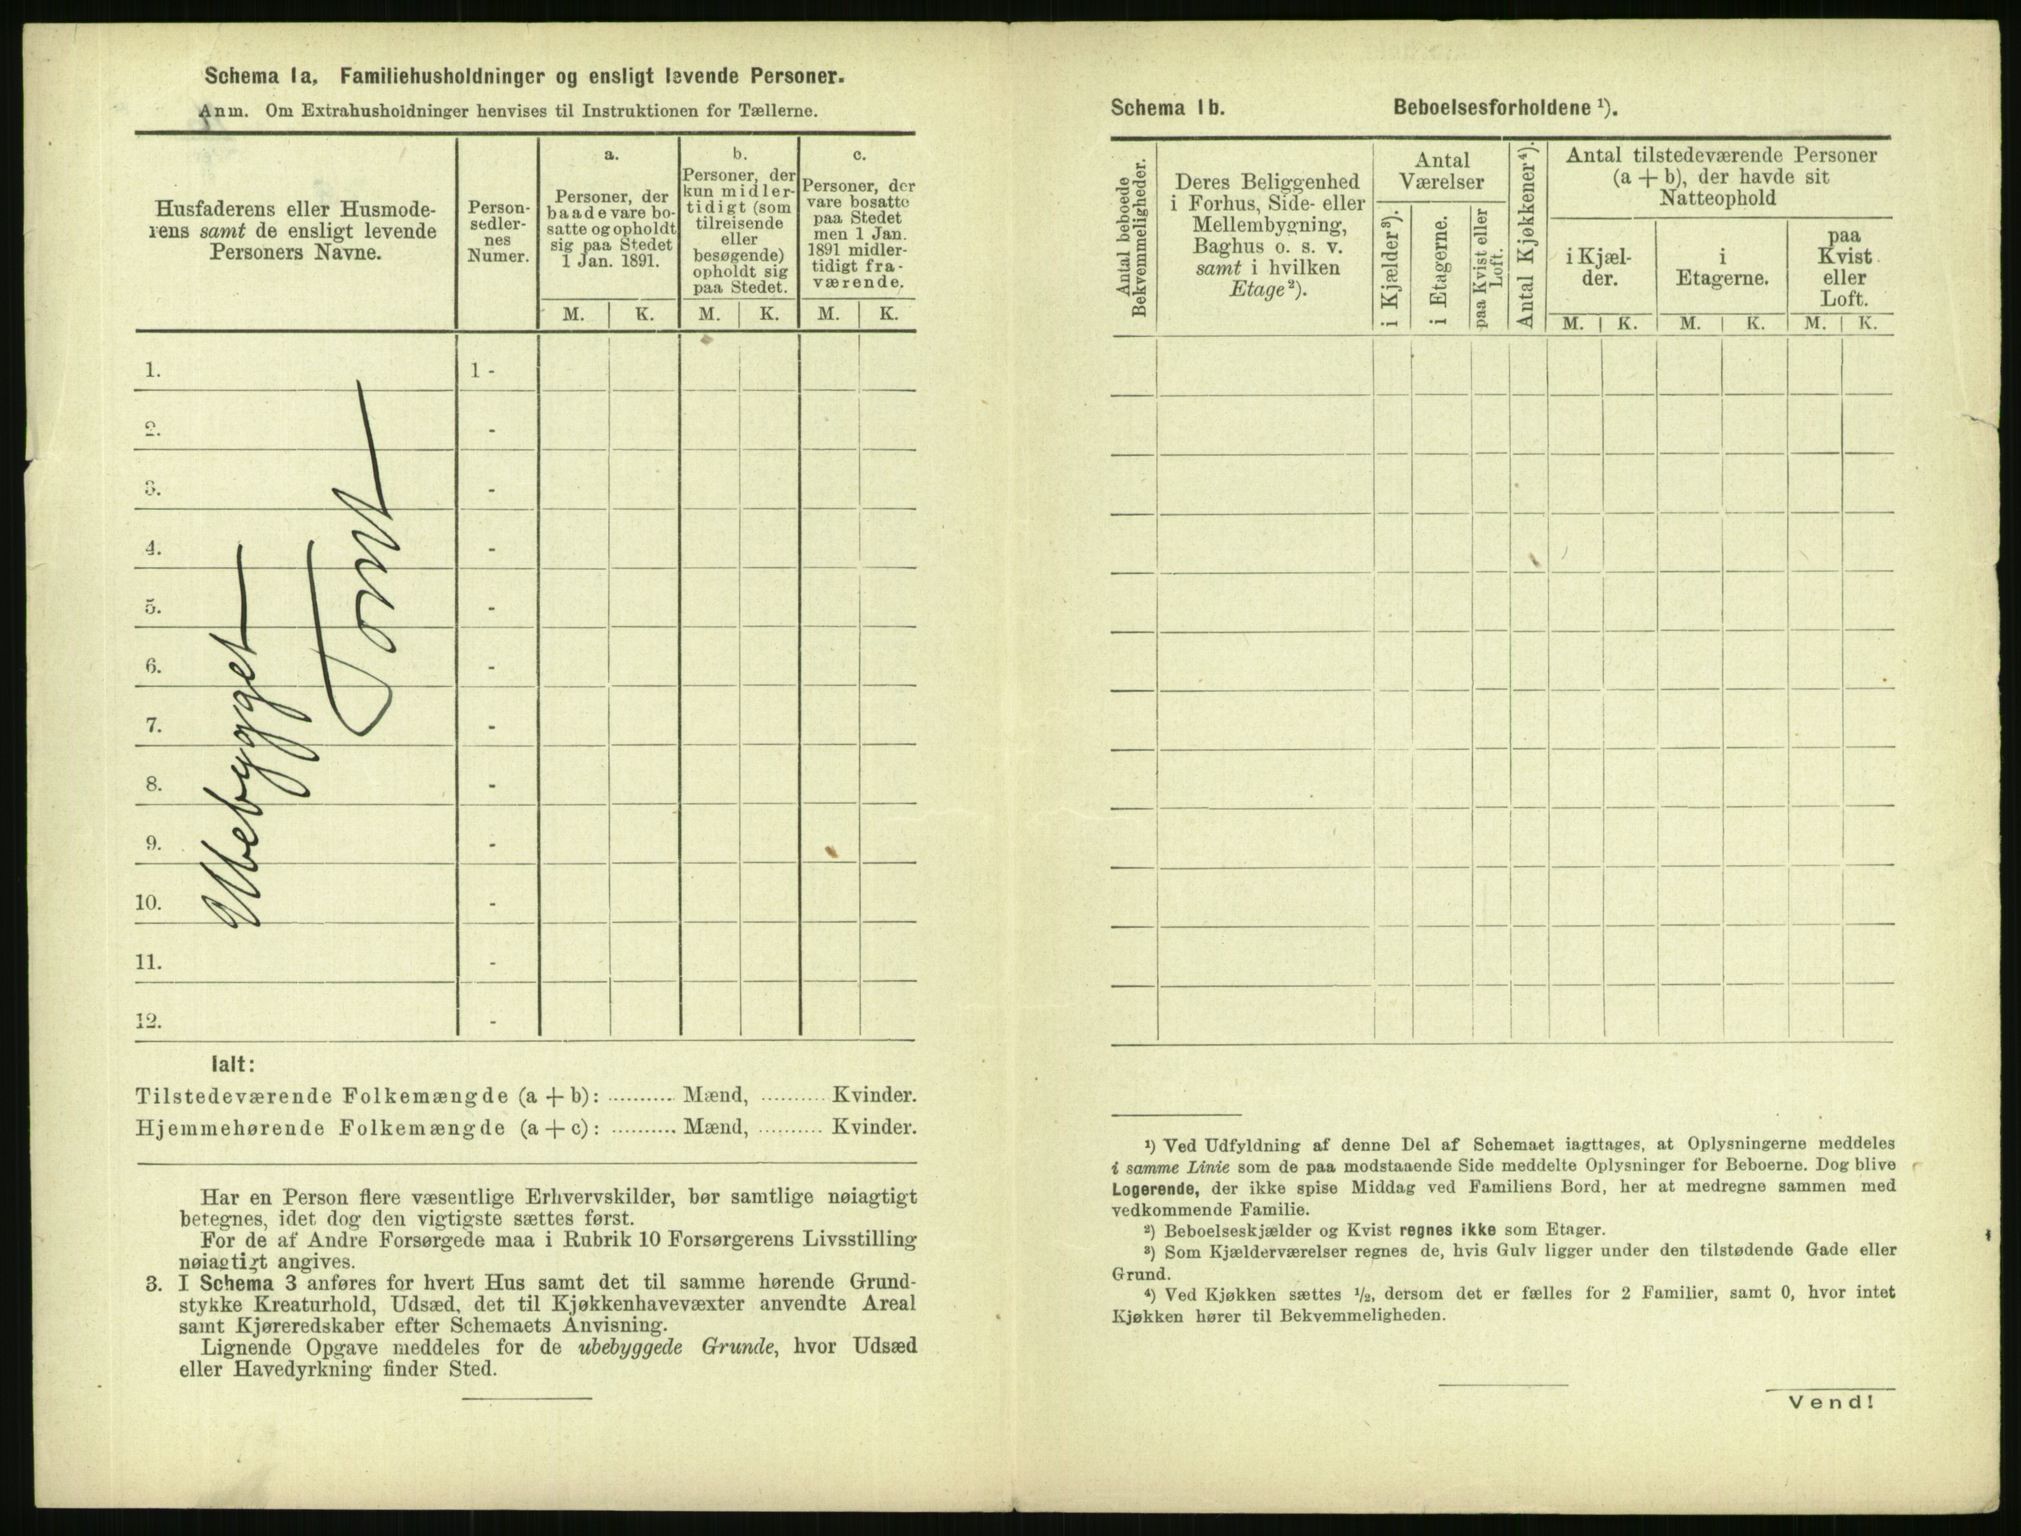 Schema 1a. Familiehusholdninger og ensligt levende Personer.
Anm. Om Extrahusholdninger henvises til Instruktionen for Tællerne.
Husfaderens eller Husmode-
rens samt de ensligt levende
Personers Navne.
Person-
sedler-
nes
Numer.
a.
Personer, der
baade vare bo-
satte og opholdt
sig paa Stedet
1 Jan. 1891.
b.
Personer, der
kun midler-
tidigt (som
tilreisende
eller
besøgende)
opholdt sig
paa Stedet.
c.
Personer, der
vare bosatte
paa Stedet
men 1 Jan.
1891 midler-
tidigt fra-
værende.
M. K. M. K. M. K.
1. 1 -
2. -
3. -
4. -
5. -
6. -
7. -
8. -
9. -
10. -
11. -
12. -
Ubebygget
Tomt
Ialt:
Tilstedeværende Folkemængde (a + b): .......... Mænd, .......... Kvinder.
Hjemmehørende Folkemængde (a + c): .......... Mænd, .......... Kvinder.
Har en Person flere væsentlige Erhvervskilder, bør samtlige nøiagtigt
betegnes, idet dog den vigtigste sættes først.
For de af Andre Forsørgede maa i Rubrik 10 Forsørgerens Livsstilling
nøiagtigt angives.
3. I Schema 3 anføres for hvert Hus samt det til samme hørende Grund-
stykke Kreaturhold, Udsæd, det til Kjøkkenhavevæxter anvendte Areal
samt Kjøreredskaber efter Schemaets Anvisning.
Lignende Opgave meddeles for de ubebyggede Grunde, hvor Udsæd
eller Havedyrkning finder Sted.
Schema 1b. Beboelsesforholdene ¹).
Antal beboede
Bekvemmeligheder.
Deres Beliggenhed
i Forhus, Side- eller
Mellembygning,
Baghus o. s. v.
samt i hvilken
Etage²).
Antal
Værelser
i Kjælder³).
i Etagerne.
paa Kvist eller
Loft.
Antal Kjøkkener⁴).
Antal tilstedeværende Personer
(a + b), der havde sit
Natteophold
i Kjæl-
der.
i
Etagerne.
paa
Kvist
eller
Loft.
M. K. M. K. M. K.
¹) Ved Udfyldning af denne Del af Schemaet iagttages, at Oplysningerne meddeles
i samme Linie som de paa modstaaende Side meddelte Oplysninger for Beboerne. Dog blive
Logerende, der ikke spise Middag ved Familiens Bord, her at medregne sammen med
vedkommende Familie.
²) Beboelseskjælder og Kvist regnes ikke som Etager.
³) Som Kjælderværelser regnes de, hvis Gulv ligger under den tilstødende Gade eller
Grund.
⁴) Ved Kjøkken sættes ½, dersom det er fælles for 2 Familier, samt 0, hvor intet
Kjøkken hører til Bekvemmeligheden.
Vend!